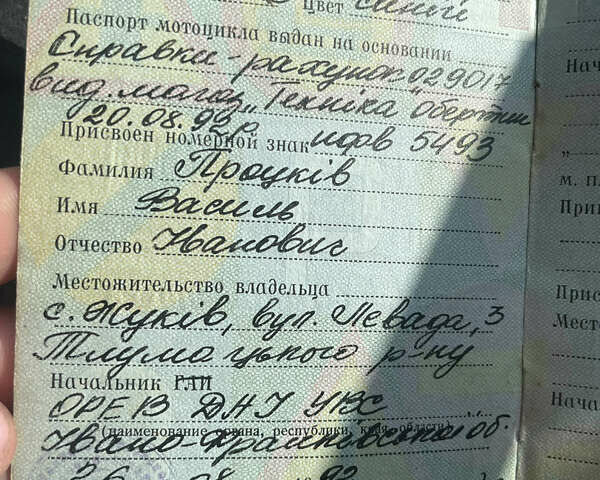 Цвет синий
Паспорт мотоцикла выдан на основании
Справки-рахунок 029017
вид. магаз. „Техніка" Обертин
20.08.92
Присвоен номерной знак ифв 5493
Фамилия Процків
Имя Василь
Отчество Іванович
Местожительство владельца
с. Жуків, вул. Левада, 3
Тлумацького р-ну
Начальник ГАИ
ОРЕВ ДАІ УВС
(наименование органа, республики, края, области)
Івано-Франківської об.
26 08 92
На
„
м. п.
При
Прис
Мест
Нача